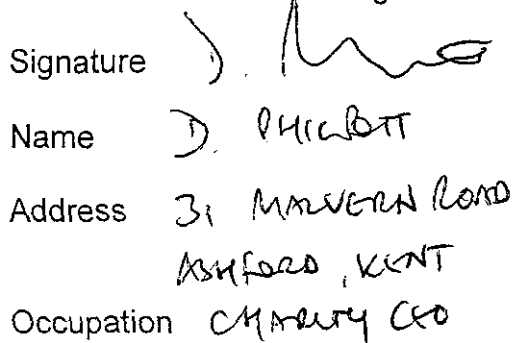 Signature D.
Name D. PHILPOTT
Address 31 MALVERN ROAD
ASHFORD, KENT
Occupation CHARITY CEO